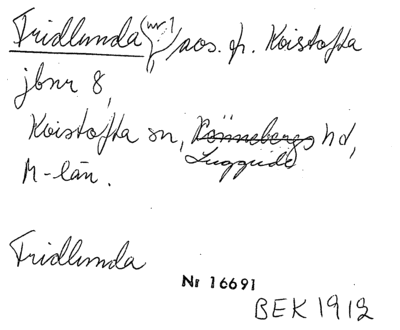 Fridlunda nr. 1, aos. fr. Kvistofta
jbnr 8,
Kvistofta sn, Rönnebergs hd,
Luggude
M-län.
Fridlunda
Nr 16691
BEK 1912